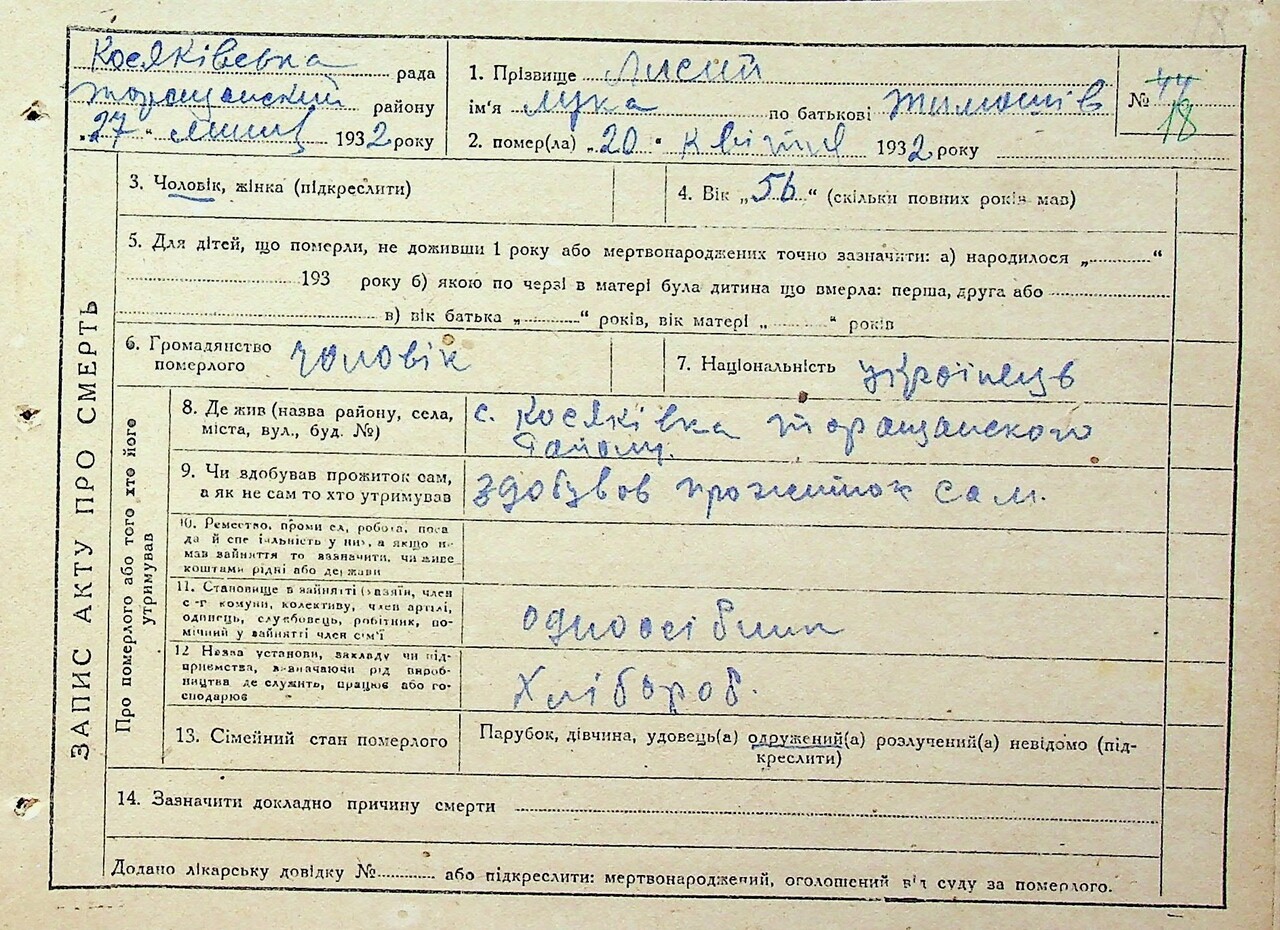 18
Косяківська рада
торащанский району
„27“ липця 1932 року
1. Прізвище Лисий
ім'я Лука по батькові Тимошів
2. помер(ла) „20“ квітня 1932 року
№ 44
18
ЗАПИС АКТУ ПРО СМЕРТЬ
3. Чоловік, жінка (підкреслити)
4. Вік „56“ (скільки повних років мав)
5. Для дітей, що померли, не доживши 1 року або мертвонароджених точно зазначити: а) народилося „ “
193 року б) якою по черзі в матері була дитина що вмерла: перша, друга або
в) вік батька „ “ років, вік матері „ “ років
6. Громадянство
померлого
чоловік
7. Національність українець
Про померлого або того хто його
утримував
8. Де жив (назва району, села,
міста, вул., буд. №)
с. Косяківка торащанского
району.
9. Чи здобував прожиток сам,
а як не сам то хто утримував
здобував прожиток сам.
10. Ремество, промисел, робота, поса
да й спеціальність у них, а якщо не
мав зайняття то зазначити, чи живе
коштами рідні або держави
11. Становище в зайнятті (хазяїн, член
с-г комуни, колективу, член артілі,
одинець, службовець, робітник, по-
мічний у зайнятті член сім'ї
одноосібник
12 Назва установи, закладу чи під-
приємства, визначаючи рід вироб-
ництва де служить, працює або го-
сподарює
Хлібороб.
13. Сімейний стан померлого
Парубок, дівчина, удовець(а) одружений(а) розлучений(а) невідомо (під-
креслити)
14. Зазначити докладно причину смерти
Додано лікарську довідку № або підкреслити: мертвонароджений, оголошений від суду за померлого.